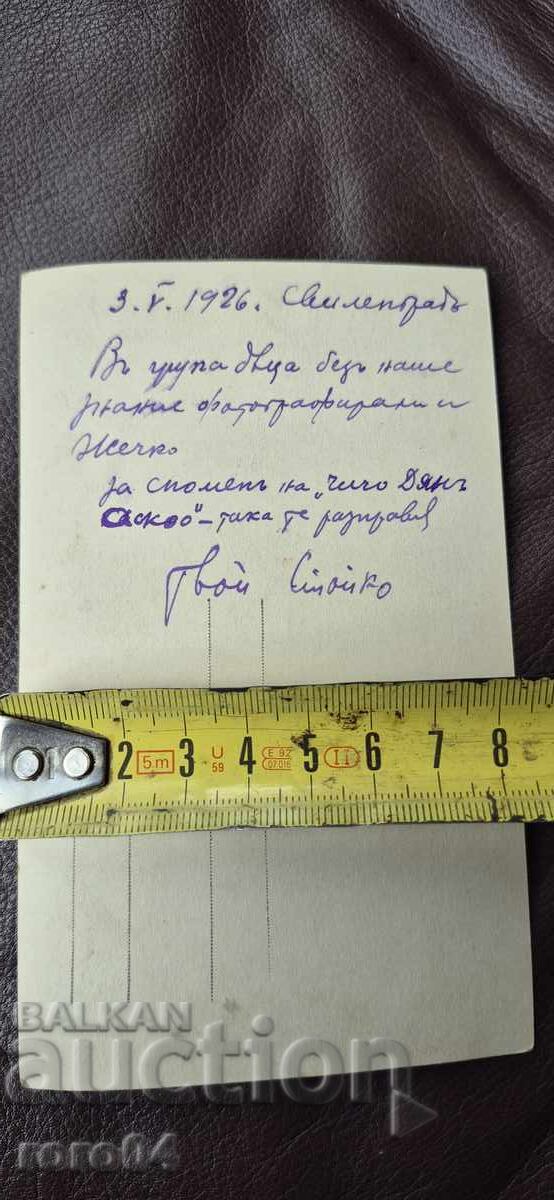 3. V. 1926. Свиленградъ
Въ група деца безъ наше
знание фотографирани и
Жечко
за споменъ на „Чичо Дянъ
— така те разправя
Твой Стойко
1 2 5 m 3 U 59 4 E 92 02.016 5 II 6 7 8
BALKAN
auction
roro04